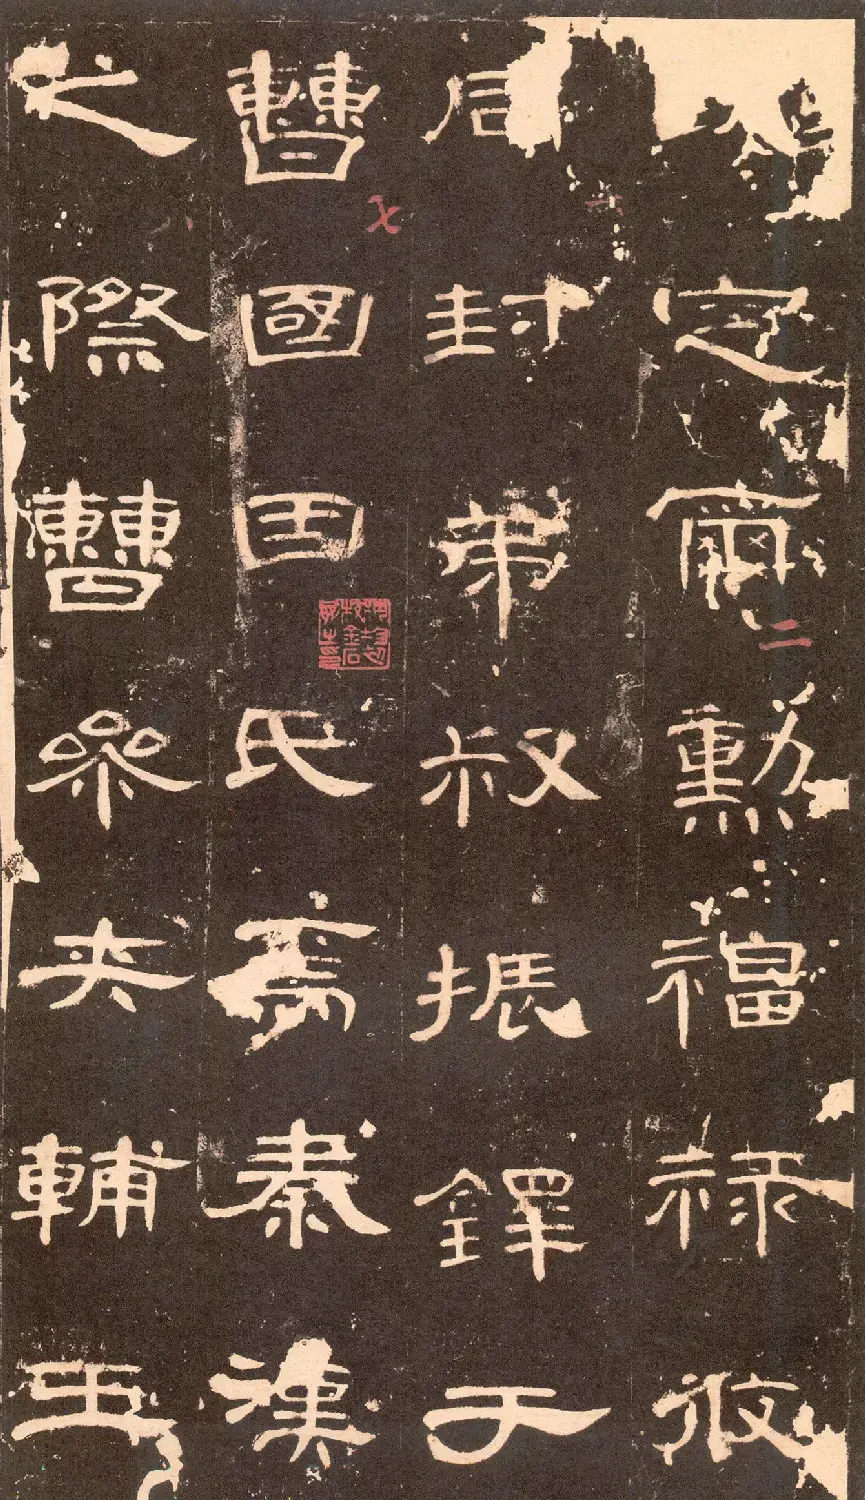 定爾勳福祿攸
封弟叔振鐸于
曹國因氏焉秦漢
之際曹參夾輔王
二